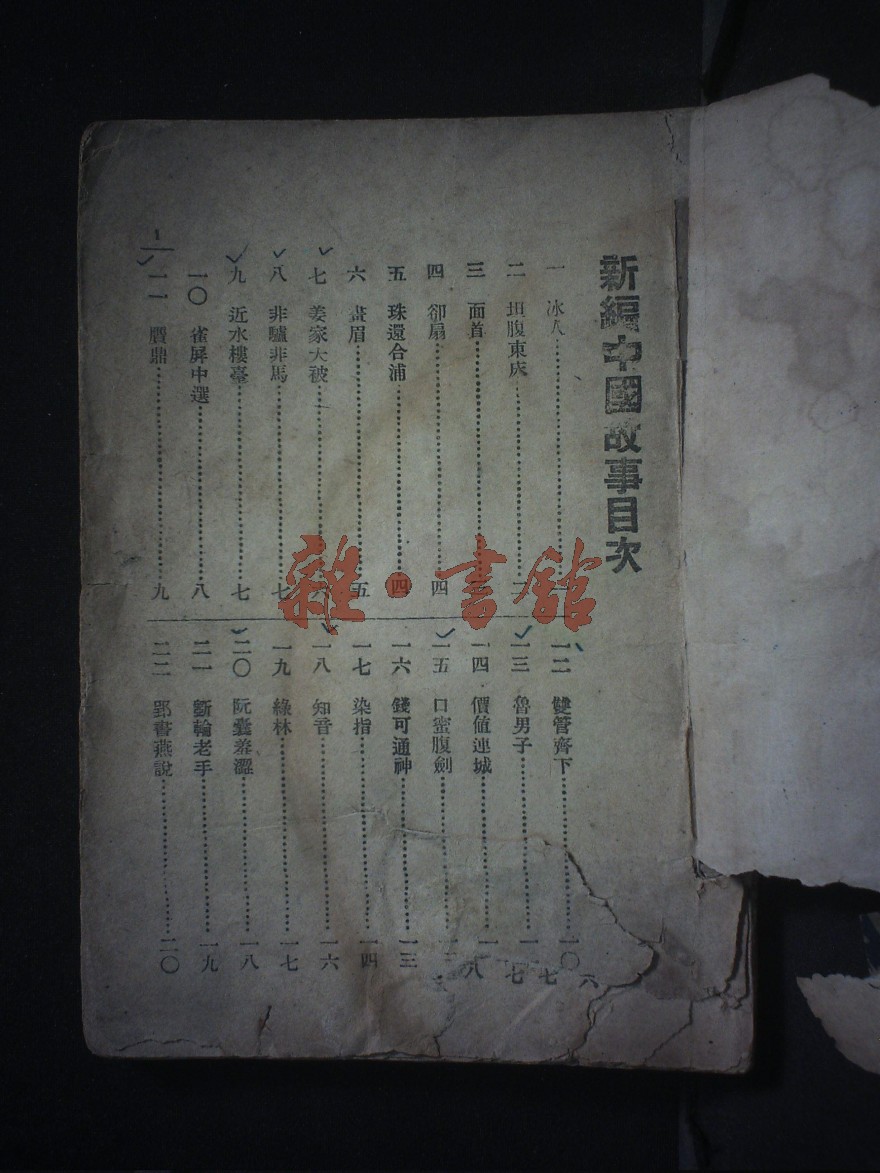 新編中國故事目次
一 冰人
二 坦腹東床 二
三 面首
四 卻扇 四
五 珠還合浦 四
六 畫眉 五
七 姜家大被
八 非驢非馬 七
九 近水樓臺 七
一〇 雀屏中選 八
一一 贋鼎 九
1
一二 雙管齊下 一〇
一三 魯男子
一四 價值連城
一五 口蜜腹劍
一六 錢可通神 一三
一七 染指 一四
一八 知音 一六
一九 綠林 一七
二〇 阮囊羞澀 一八
二一 斲輪老手 一九
二二 郢書燕說 二〇
六
七
七
八
雜·書館